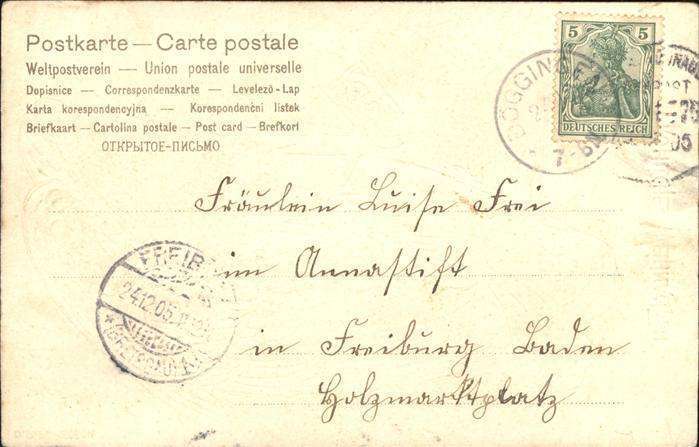 Postkarte — Carte postale
Weltpostverein — Union postale universelle
Dopisnice — Correspondenzkarte — Levelező-Lap
Karta korespondencyjna — Korespondenčni listek
Briefkaart — Cartolina postale — Post card — Brefkort
ОТКРЫТОЕ-ПИСЬМО
5 5
DEUTSCHES REICH
Fräulein Luise Frei
im Annastift
in Freiburg Baden
Holzmarktplatz
24.12.05